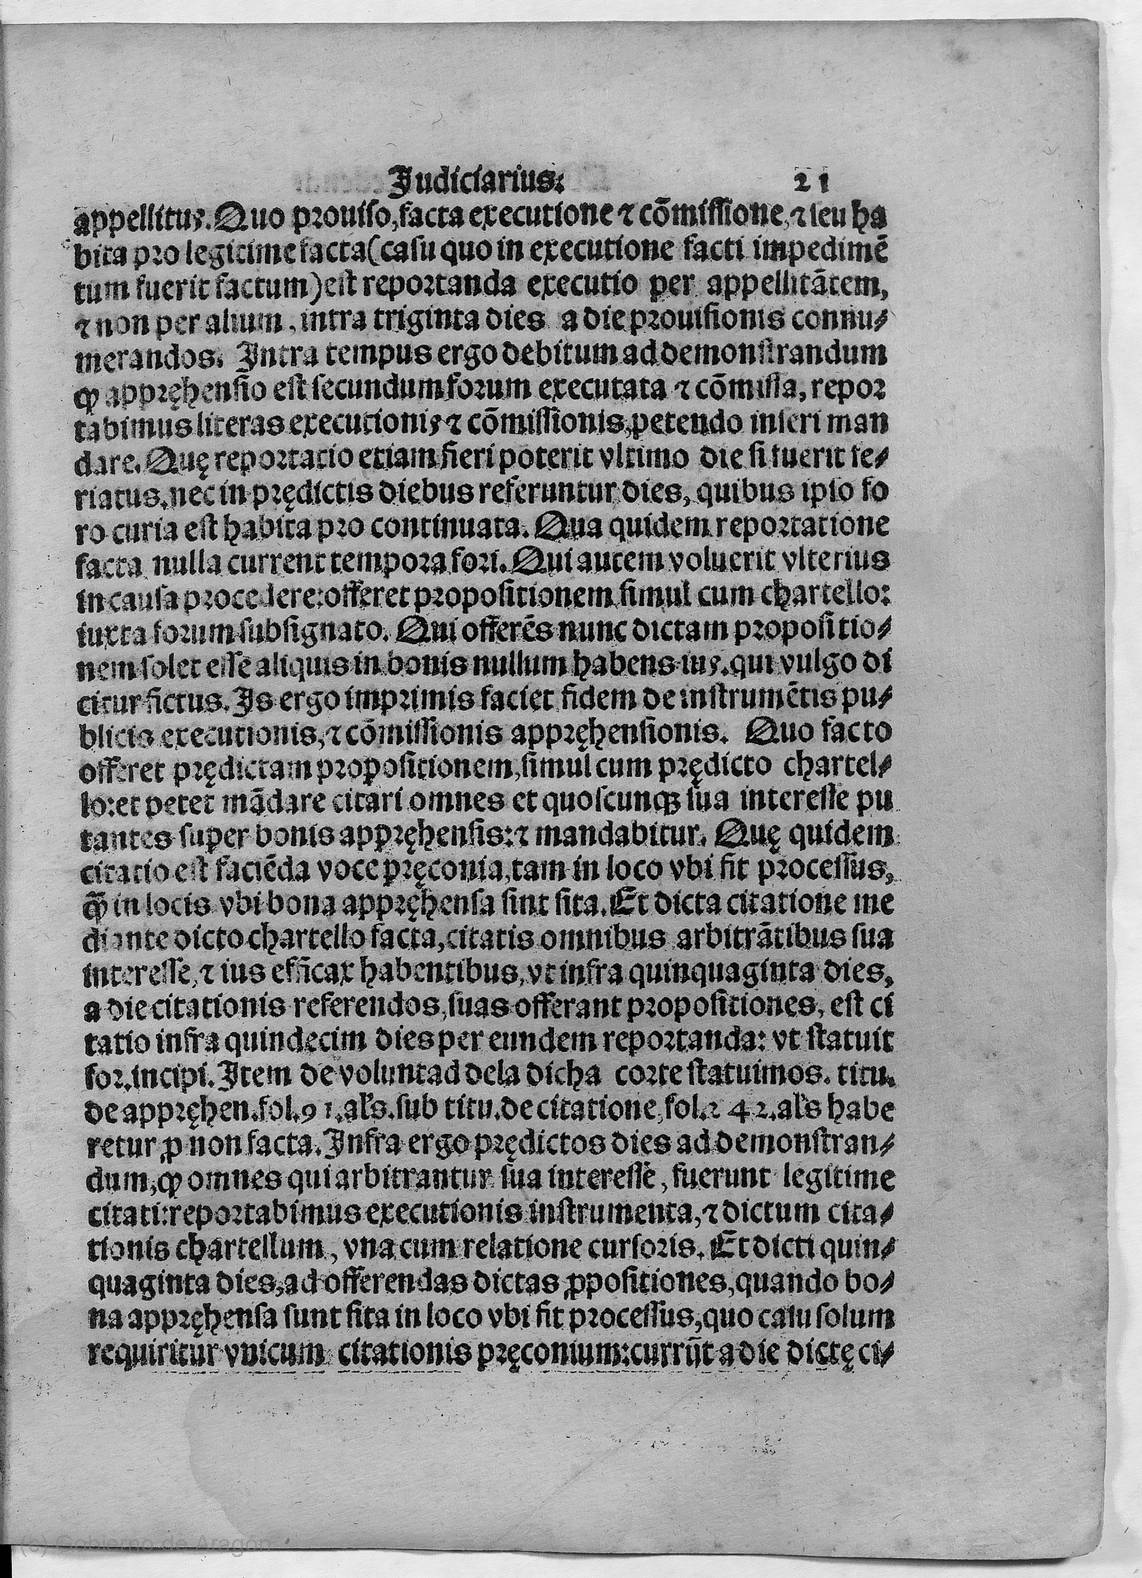 Judiciarius: 21
appellitus. Quo prouiso, facta executione ⁊ cõmissione, ⁊ seu ha
bita pro legitime facta (casu quo in executione facti impedimẽ
tum fuerit factum) est reportanda executio per appellitãtem,
⁊ non per alium, intra triginta dies a die prouisionis connu⸗
merandos. Intra tempus ergo debitum ad demonstrandum
ꝙ appręhensio est secundum forum executata ⁊ cõmissa, repor
tabimus literas executionis ⁊ cõmissionis, petendo inseri man
dare. Quę reportatio etiam fieri poterit vltimo die si fuerit fe⸗
riatus, nec in prędictis diebus referuntur dies, quibus ipso fo
ro curia est habita pro continuata. Qua quidem reportatione
facta nulla current tempora fori. Qui autem voluerit vlterius
in causa procedere: offeret propositionem simul cum chartello:
iuxta forum subsignato. Qui offerẽs nunc dictam propositio⸗
nem solet esse aliquis in bonis nullum habens ius, qui vulgo di
citur fictus. Is ergo imprimis faciet fidem de instrumẽtis pu⸗
blicis executionis, ⁊ cõmissionis appręhensionis. Quo facto
offeret prędictam propositionem, simul cum prędicto chartel⸗
lo: et petet mãdare citari omnes et quoscunqꝫ sua interesse pu
tantes super bonis appręhensis: ⁊ mandabitur. Quę quidem
citatio est faciẽda voce pręconia, tam in loco vbi fit processus,
ꝙ̃ in locis vbi bona appręhensa sint sita. Et dicta citatione me
diante dicto chartello facta, citatis omnibus arbitrãtibus sua
interesse, ⁊ ius efficax habentibus, vt infra quinquaginta dies,
a die citationis referendos, suas offerant propositiones, est ci
tatio infra quindecim dies per eundem reportanda: vt statuit
for. incipi. Item de voluntad dela dicha corte statuimos. titu.
de appręhen. fol. 91. als. sub titu. de citatione, fol. 242. als habe
retur ꝓ non facta. Infra ergo prędictos dies ad demonstran⸗
dum, ꝙ omnes qui arbitrantur sua interesse, fuerunt legitime
citati: reportabimus executionis instrumenta, ⁊ dictum cita⸗
tionis chartellum, vna cum relatione cursoris. Et dicti quin⸗
quaginta dies, ad offerendas dictas ꝓpositiones, quando bo⸗
na appręhensa sunt sita in loco vbi fit processus, quo casu solum
requiritur vnicum citationis pręconium: currũt a die dictę ci⸗
(c) Gobierno de Aragón